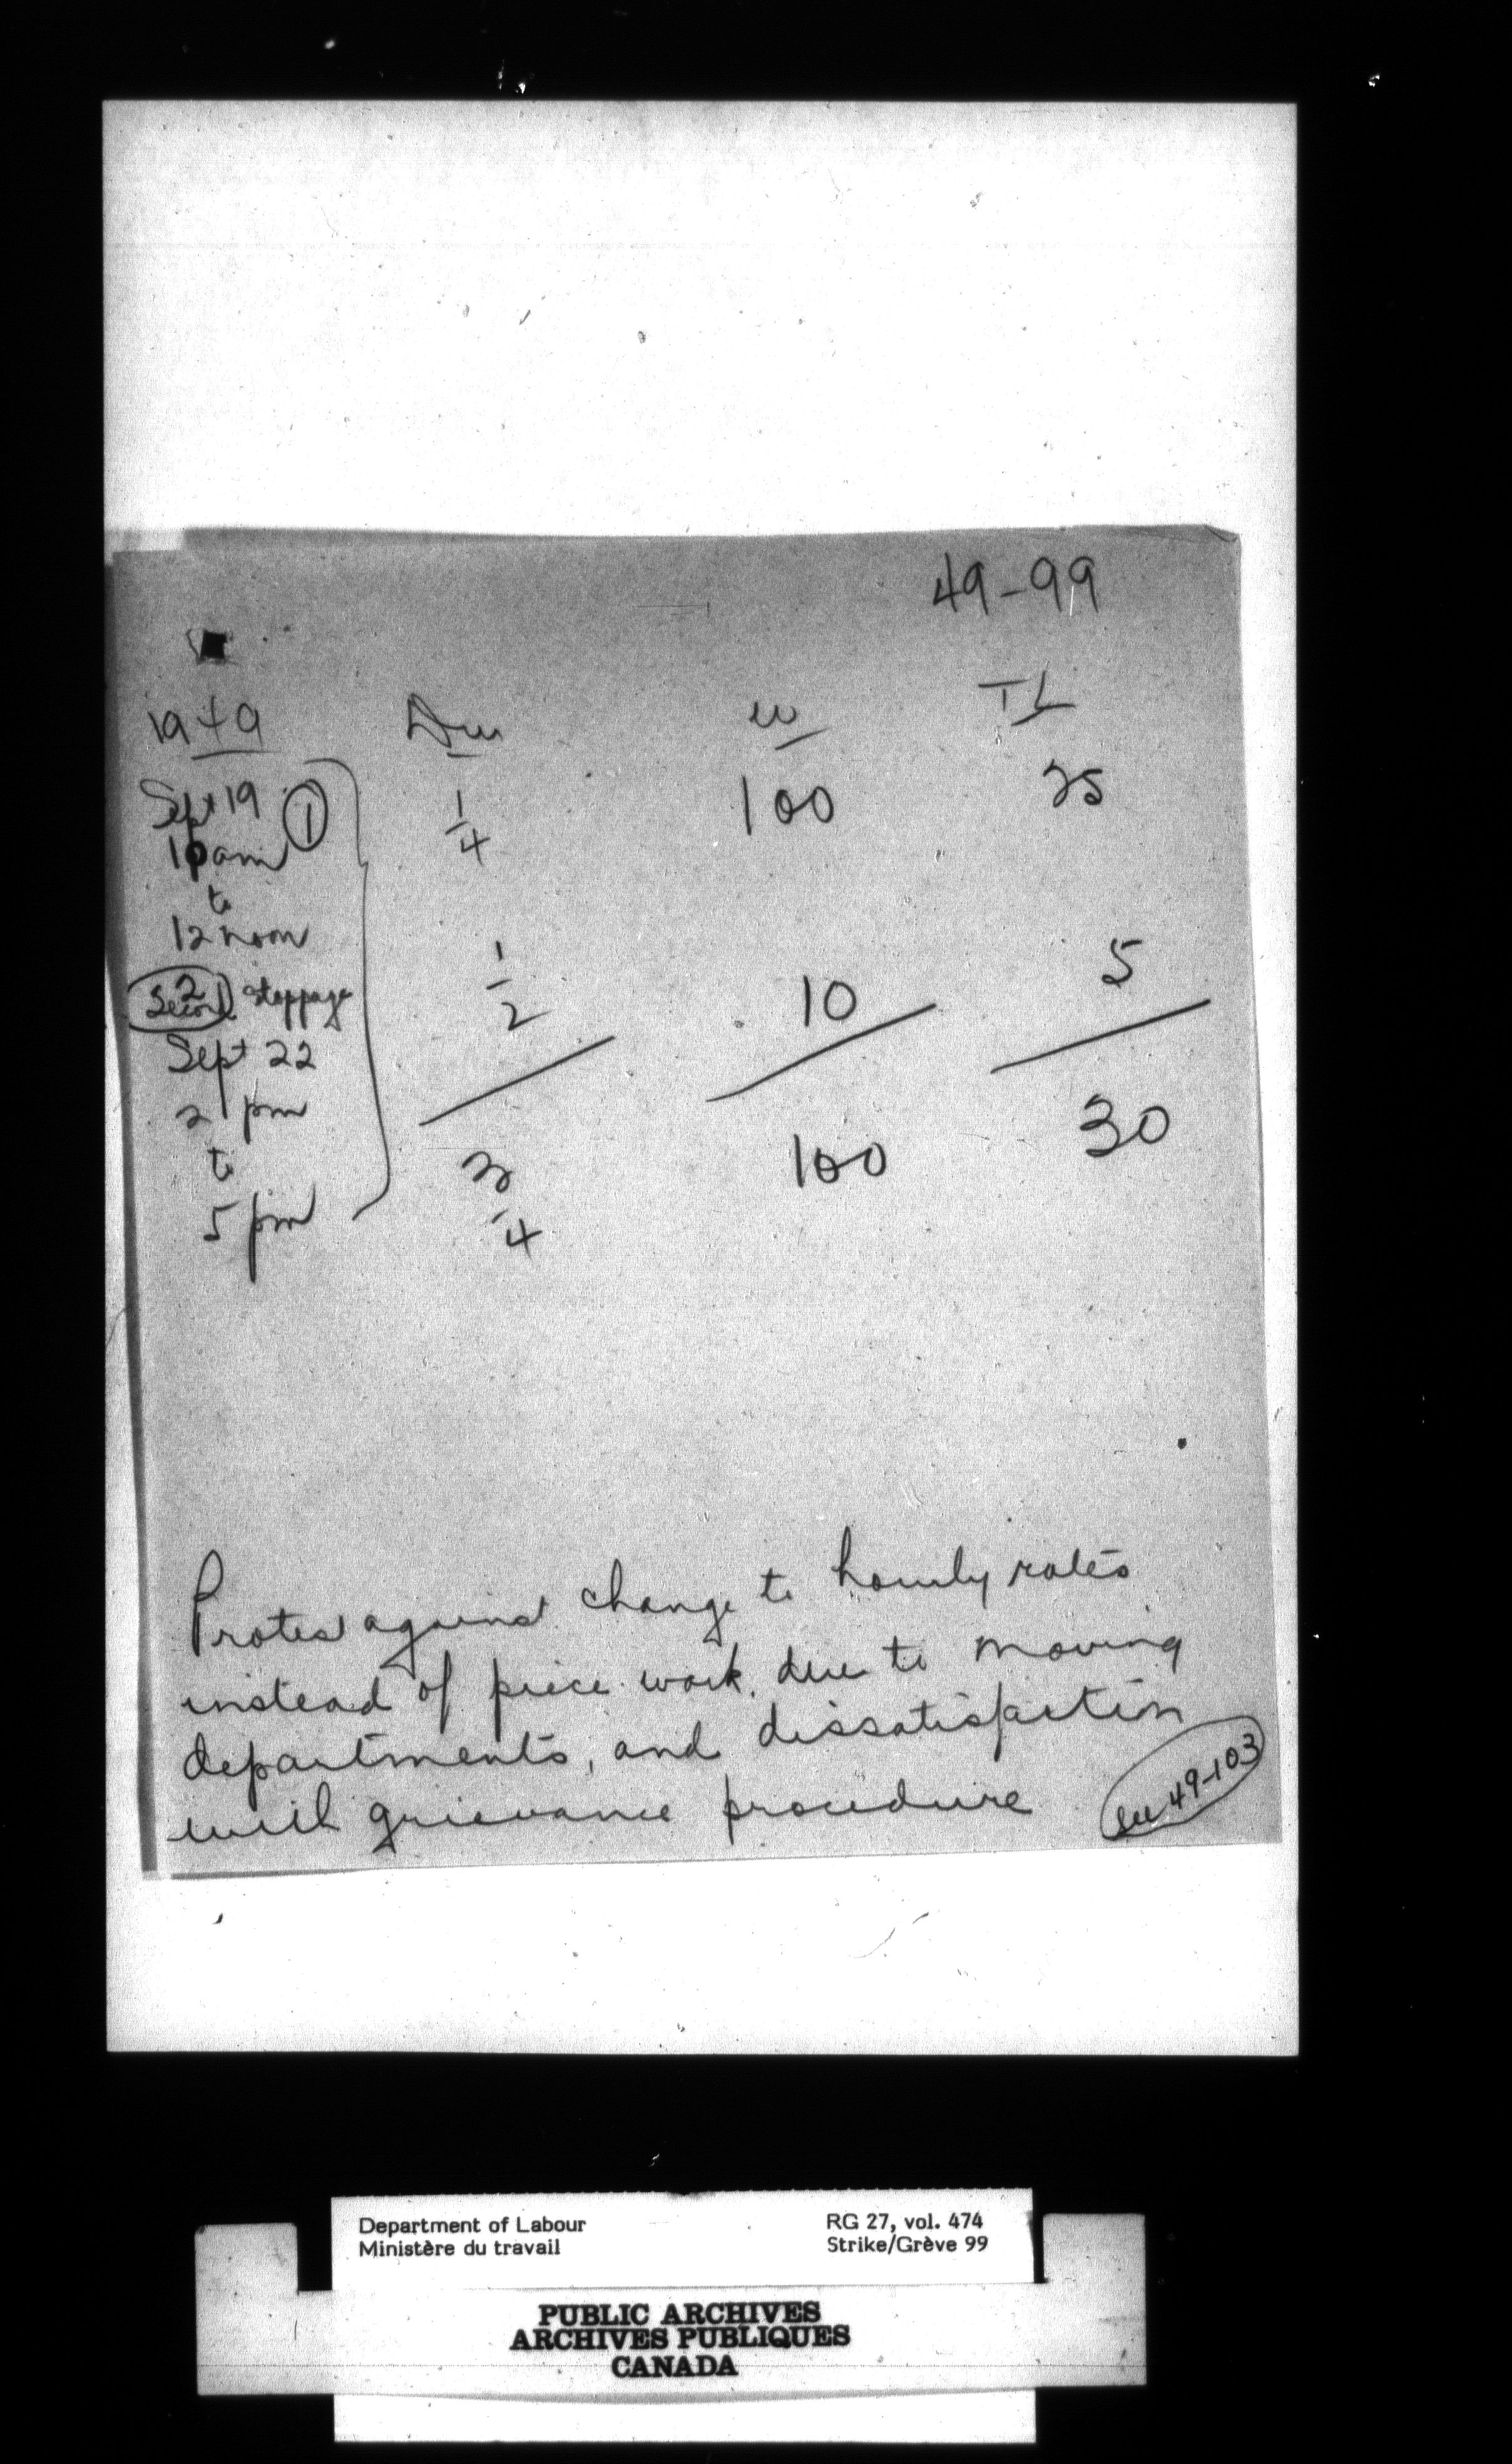 49-99
1949 Dur W TL
Sept 19 ① 1/4 100 25
10 am
to
12 noon
2
Second stoppage 1/2 10 5
Sept 22
2 pm
to
5 pm
3/4 100 30
Protest against change to hourly rates
instead of piece work, due to moving
departments, and dissatisfaction
with grievance procedure
see 49-103
Department of Labour RG 27, vol. 474
Ministère du travail Strike/Grève 99
PUBLIC ARCHIVES
ARCHIVES PUBLIQUES
CANADA